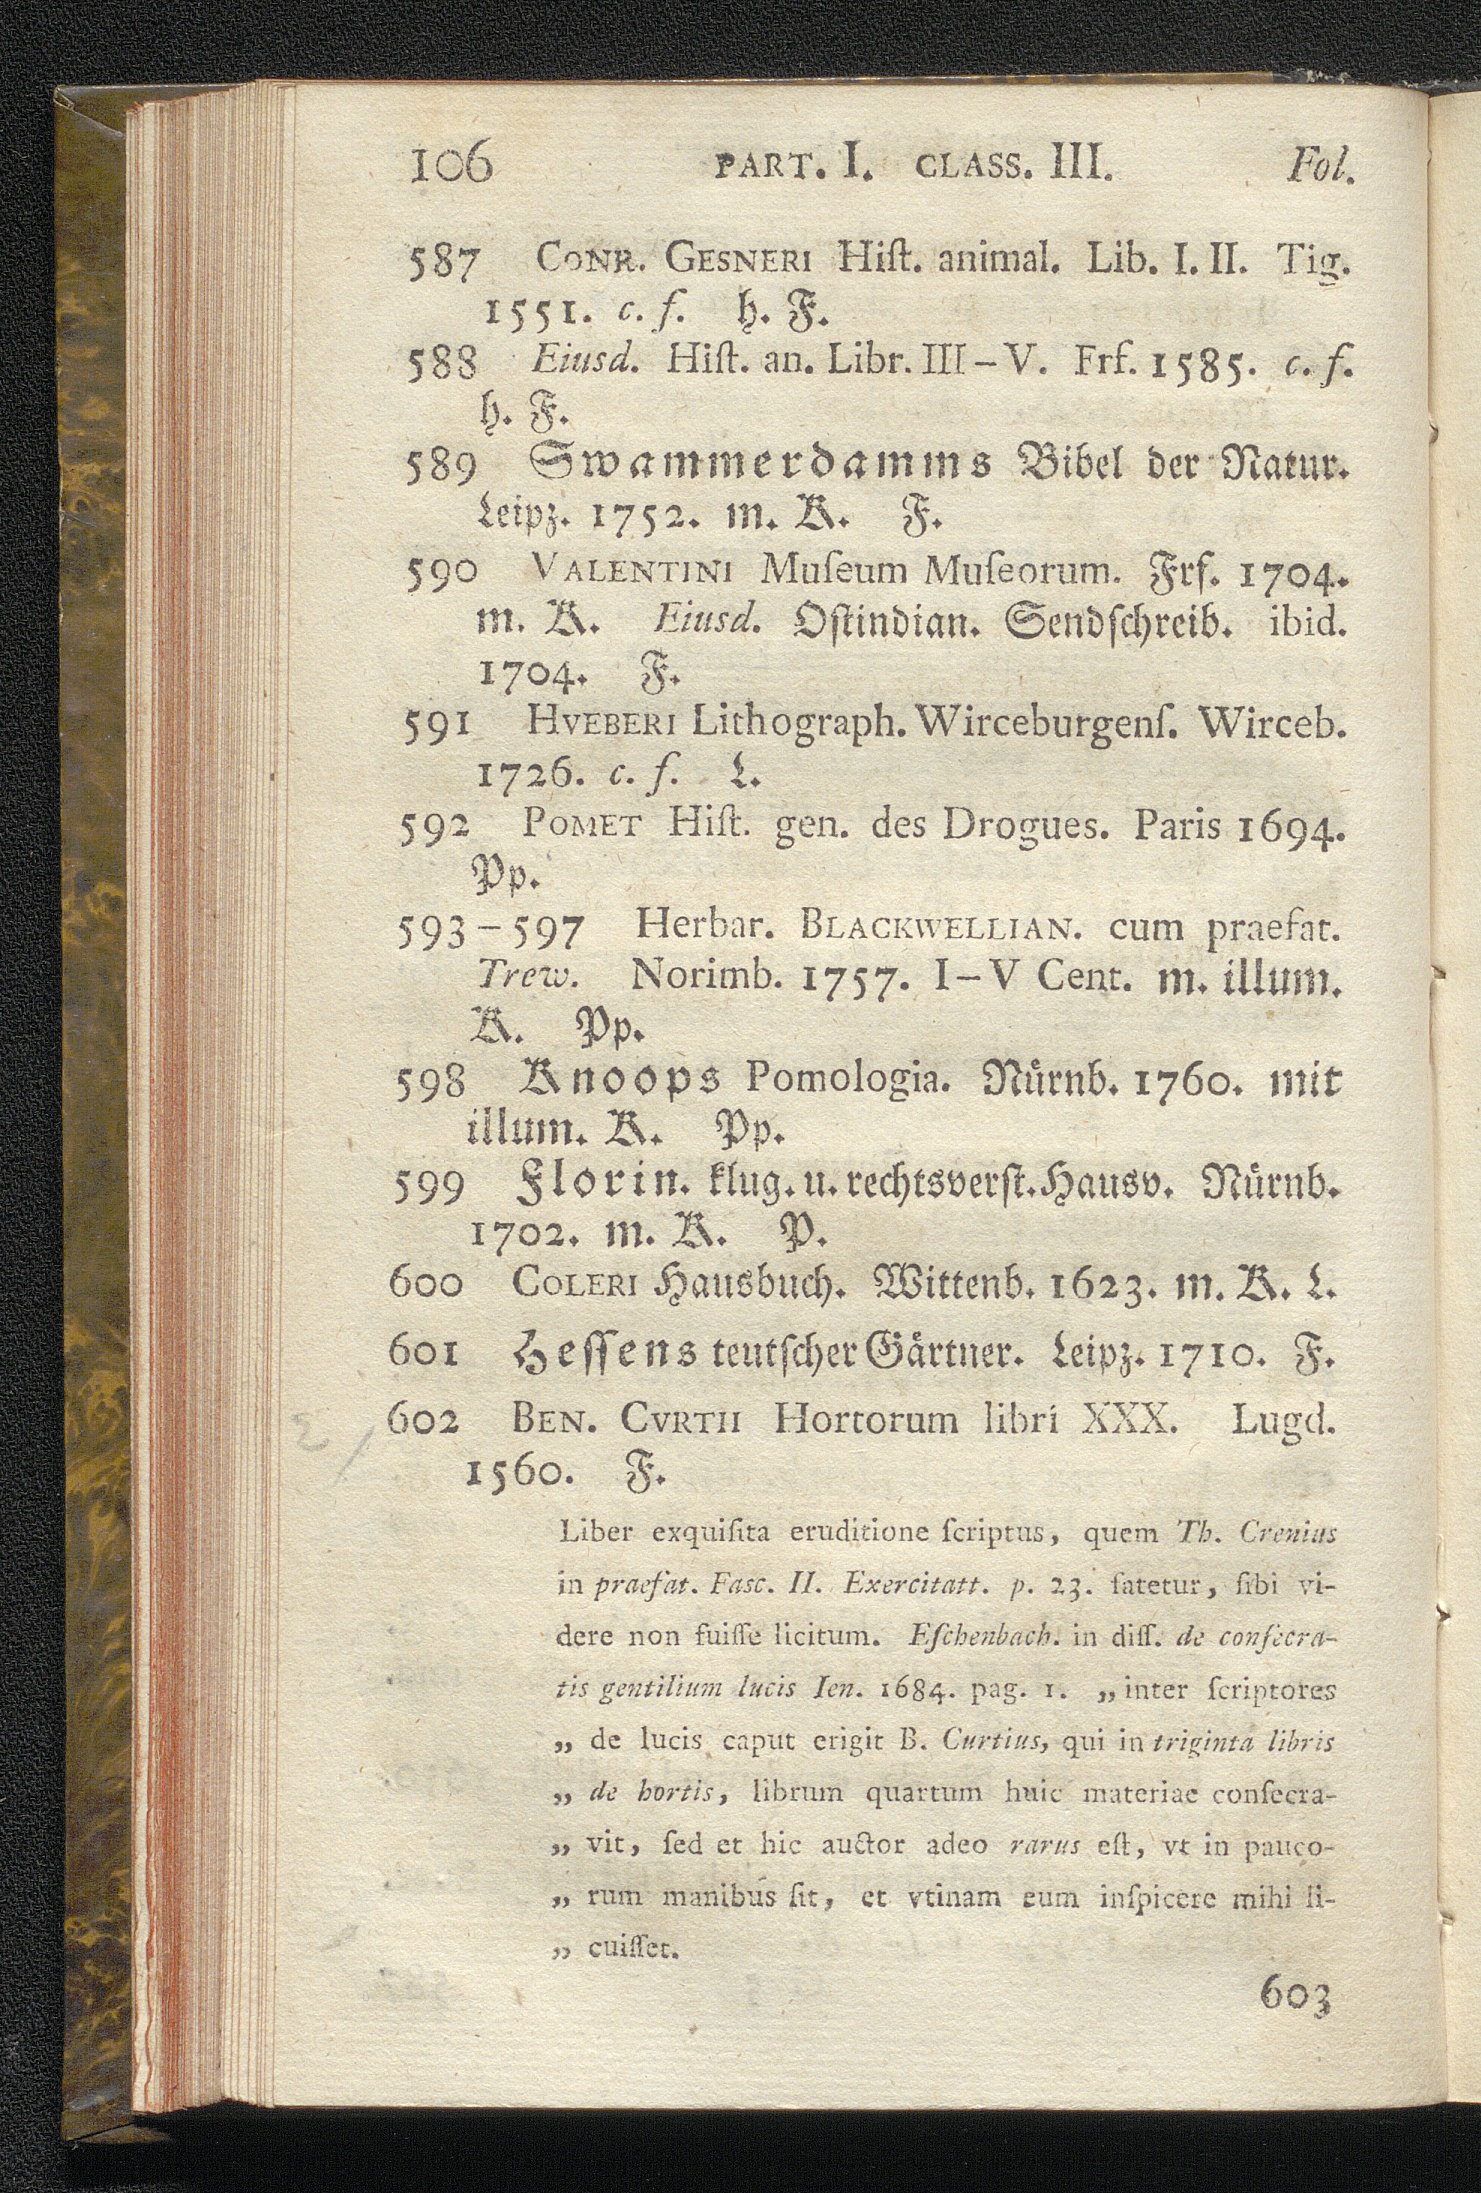 106 PART. I. CLASS. III. Fol.
587 CONR. GESNERI Hiſt. animal. Lib. I. II. Tig.
1551. c. f. h. F.
588 Eiusd. Hiſt. an. Libr. III – V. Frf. 1585. c. f.
h. F.
589 Swammerdamms Bibel der Natur.
Leipz. 1752. m. K. F.
590 VALENTINI Muſeum Muſeorum. Frf. 1704.
m. K. Eiusd. Oſtindian. Sendſchreib. ibid.
1704. F.
591 HVEBERI Lithograph. Wirceburgenſ. Wirceb.
1726. c. f. L.
592 POMET Hiſt. gen. des Drogues. Paris 1694.
Pp.
593 – 597 Herbar. BLACKWELLIAN. cum praefat.
Trew. Norimb. 1757. I – V Cent. m. illum.
K. Pp.
598 Knoops Pomologia. Nürnb. 1760. mit
illum. K. Pp.
599 Florin. klug. u. rechtsverſt. Hausv. Nürnb.
1702. m. K. P.
600 COLERI Hausbuch. Wittenb. 1623. m. K. L.
601 Heſſens teutſcher Gärtner. Leipz. 1710. F.
602 BEN. CVRTII Hortorum libri XXX. Lugd.
1560. F.
Liber exquiſita eruditione ſcriptus, quem Th. Crenius
in praefat. Fasc. II. Exercitatt. p. 23. fatetur, ſibi vi-
dere non fuiſſe licitum. Eſchenbach. in diſſ. de conſecra-
tis gentilium lucis Ien. 1684. pag. 1. „ inter ſcriptores
„ de lucis caput erigit B. Curtius, qui in triginta libris
„ de hortis, librum quartum huic materiae conſecra-
„ vit, ſed et hic auctor adeo rarus eſt, vt in pauco-
„ rum manibus ſit, et vtinam eum inſpicere mihi li-
„ cuiſſet.
603